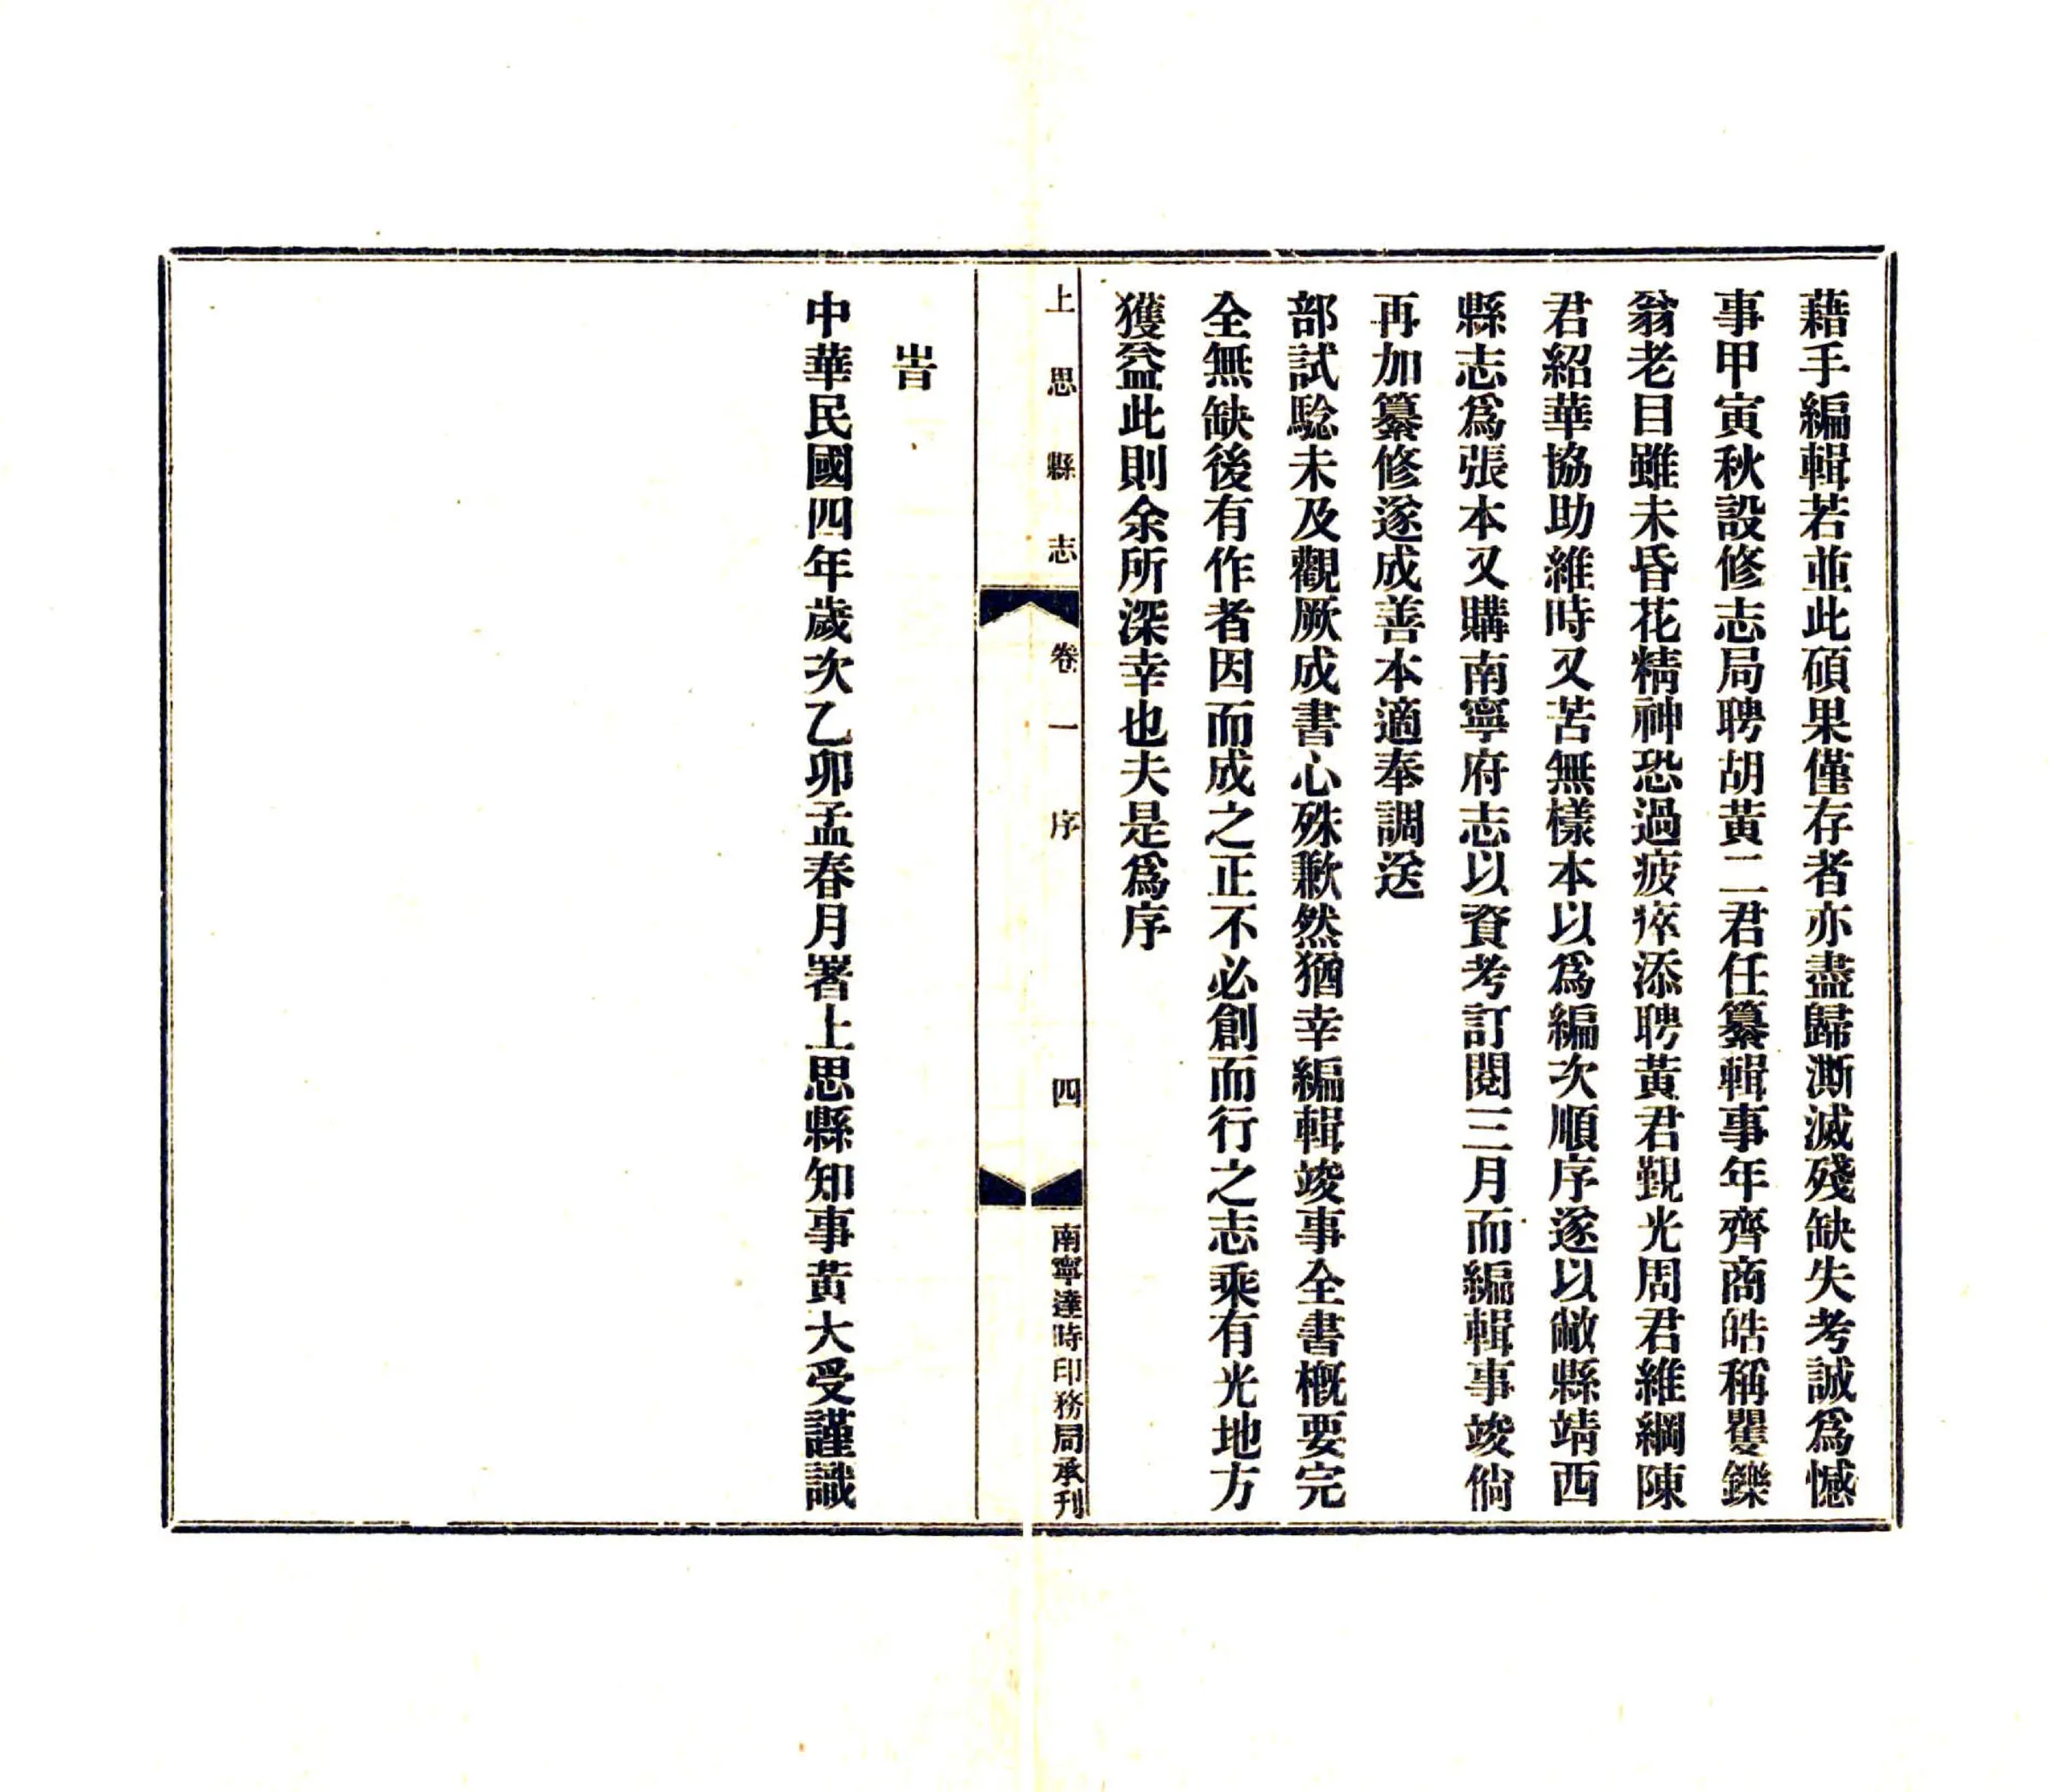 藉手編輯若並此碩果僅存者亦盡歸澌滅殘缺失考誠爲憾
事甲寅秋設修志局聘胡黃二君任纂輯事年齊商皓稱矍鑠
翁老目雖未昏花精神恐過疲瘁添聘黃君覲光周君維綱陳
君紹華協助維時又苦無樣本以爲編次順序遂以敝縣靖西
縣志爲張本又購南寧府志以資考訂閱三月而編輯事竣倘
再加纂修遂成善本適奉調送
部試騐未及觀厥成書心殊歉然猶幸編輯竣事全書概要完
全無缺後有作者因而成之正不必創而行之志乘有光地方
獲益此則余所深幸也夫是爲序
上思縣志 卷一 序 四 南寧達時印務局承刊
旹
中華民國四年歲次乙卯孟春月署上思縣知事黃大受謹識